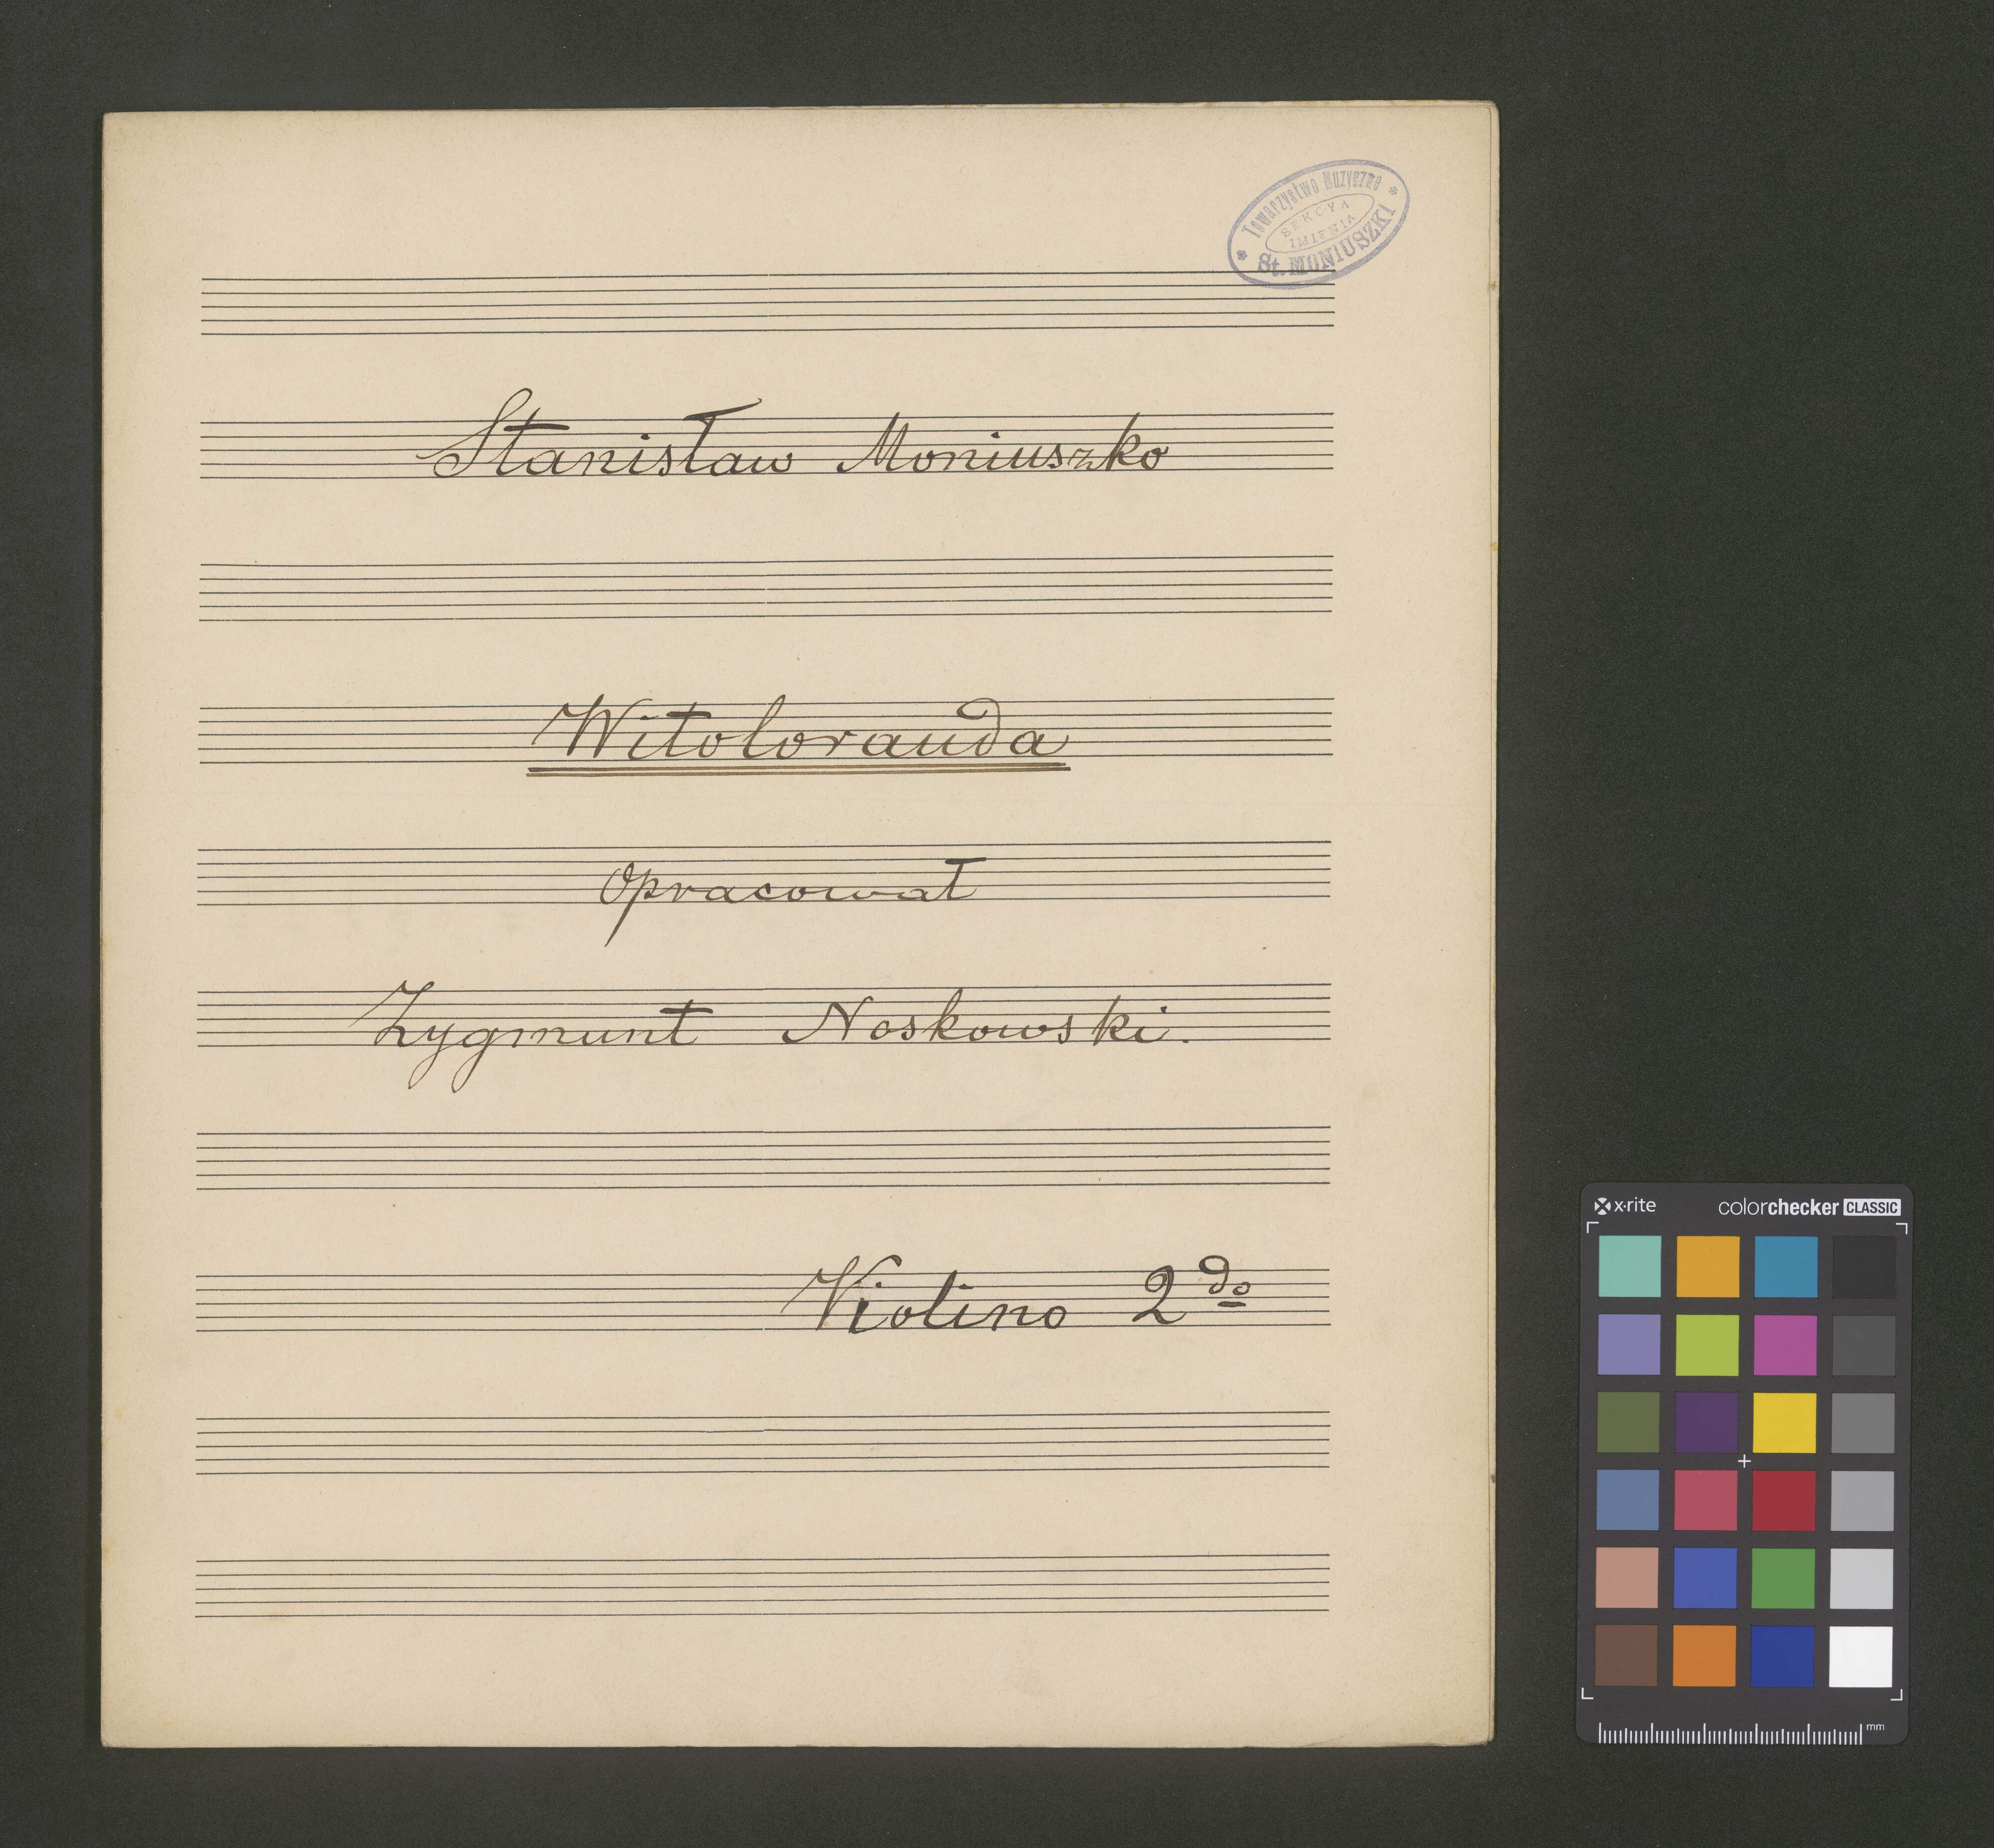 Towarzystwo Muzyczne
SEKCYA
IMIENIA
St. MONIUSZKI
Stanisław Moniuszko
Witoloranda
Opracował
Zygmunt Noskowski.
Violino 2do
x·rite colorchecker CLASSIC
mm